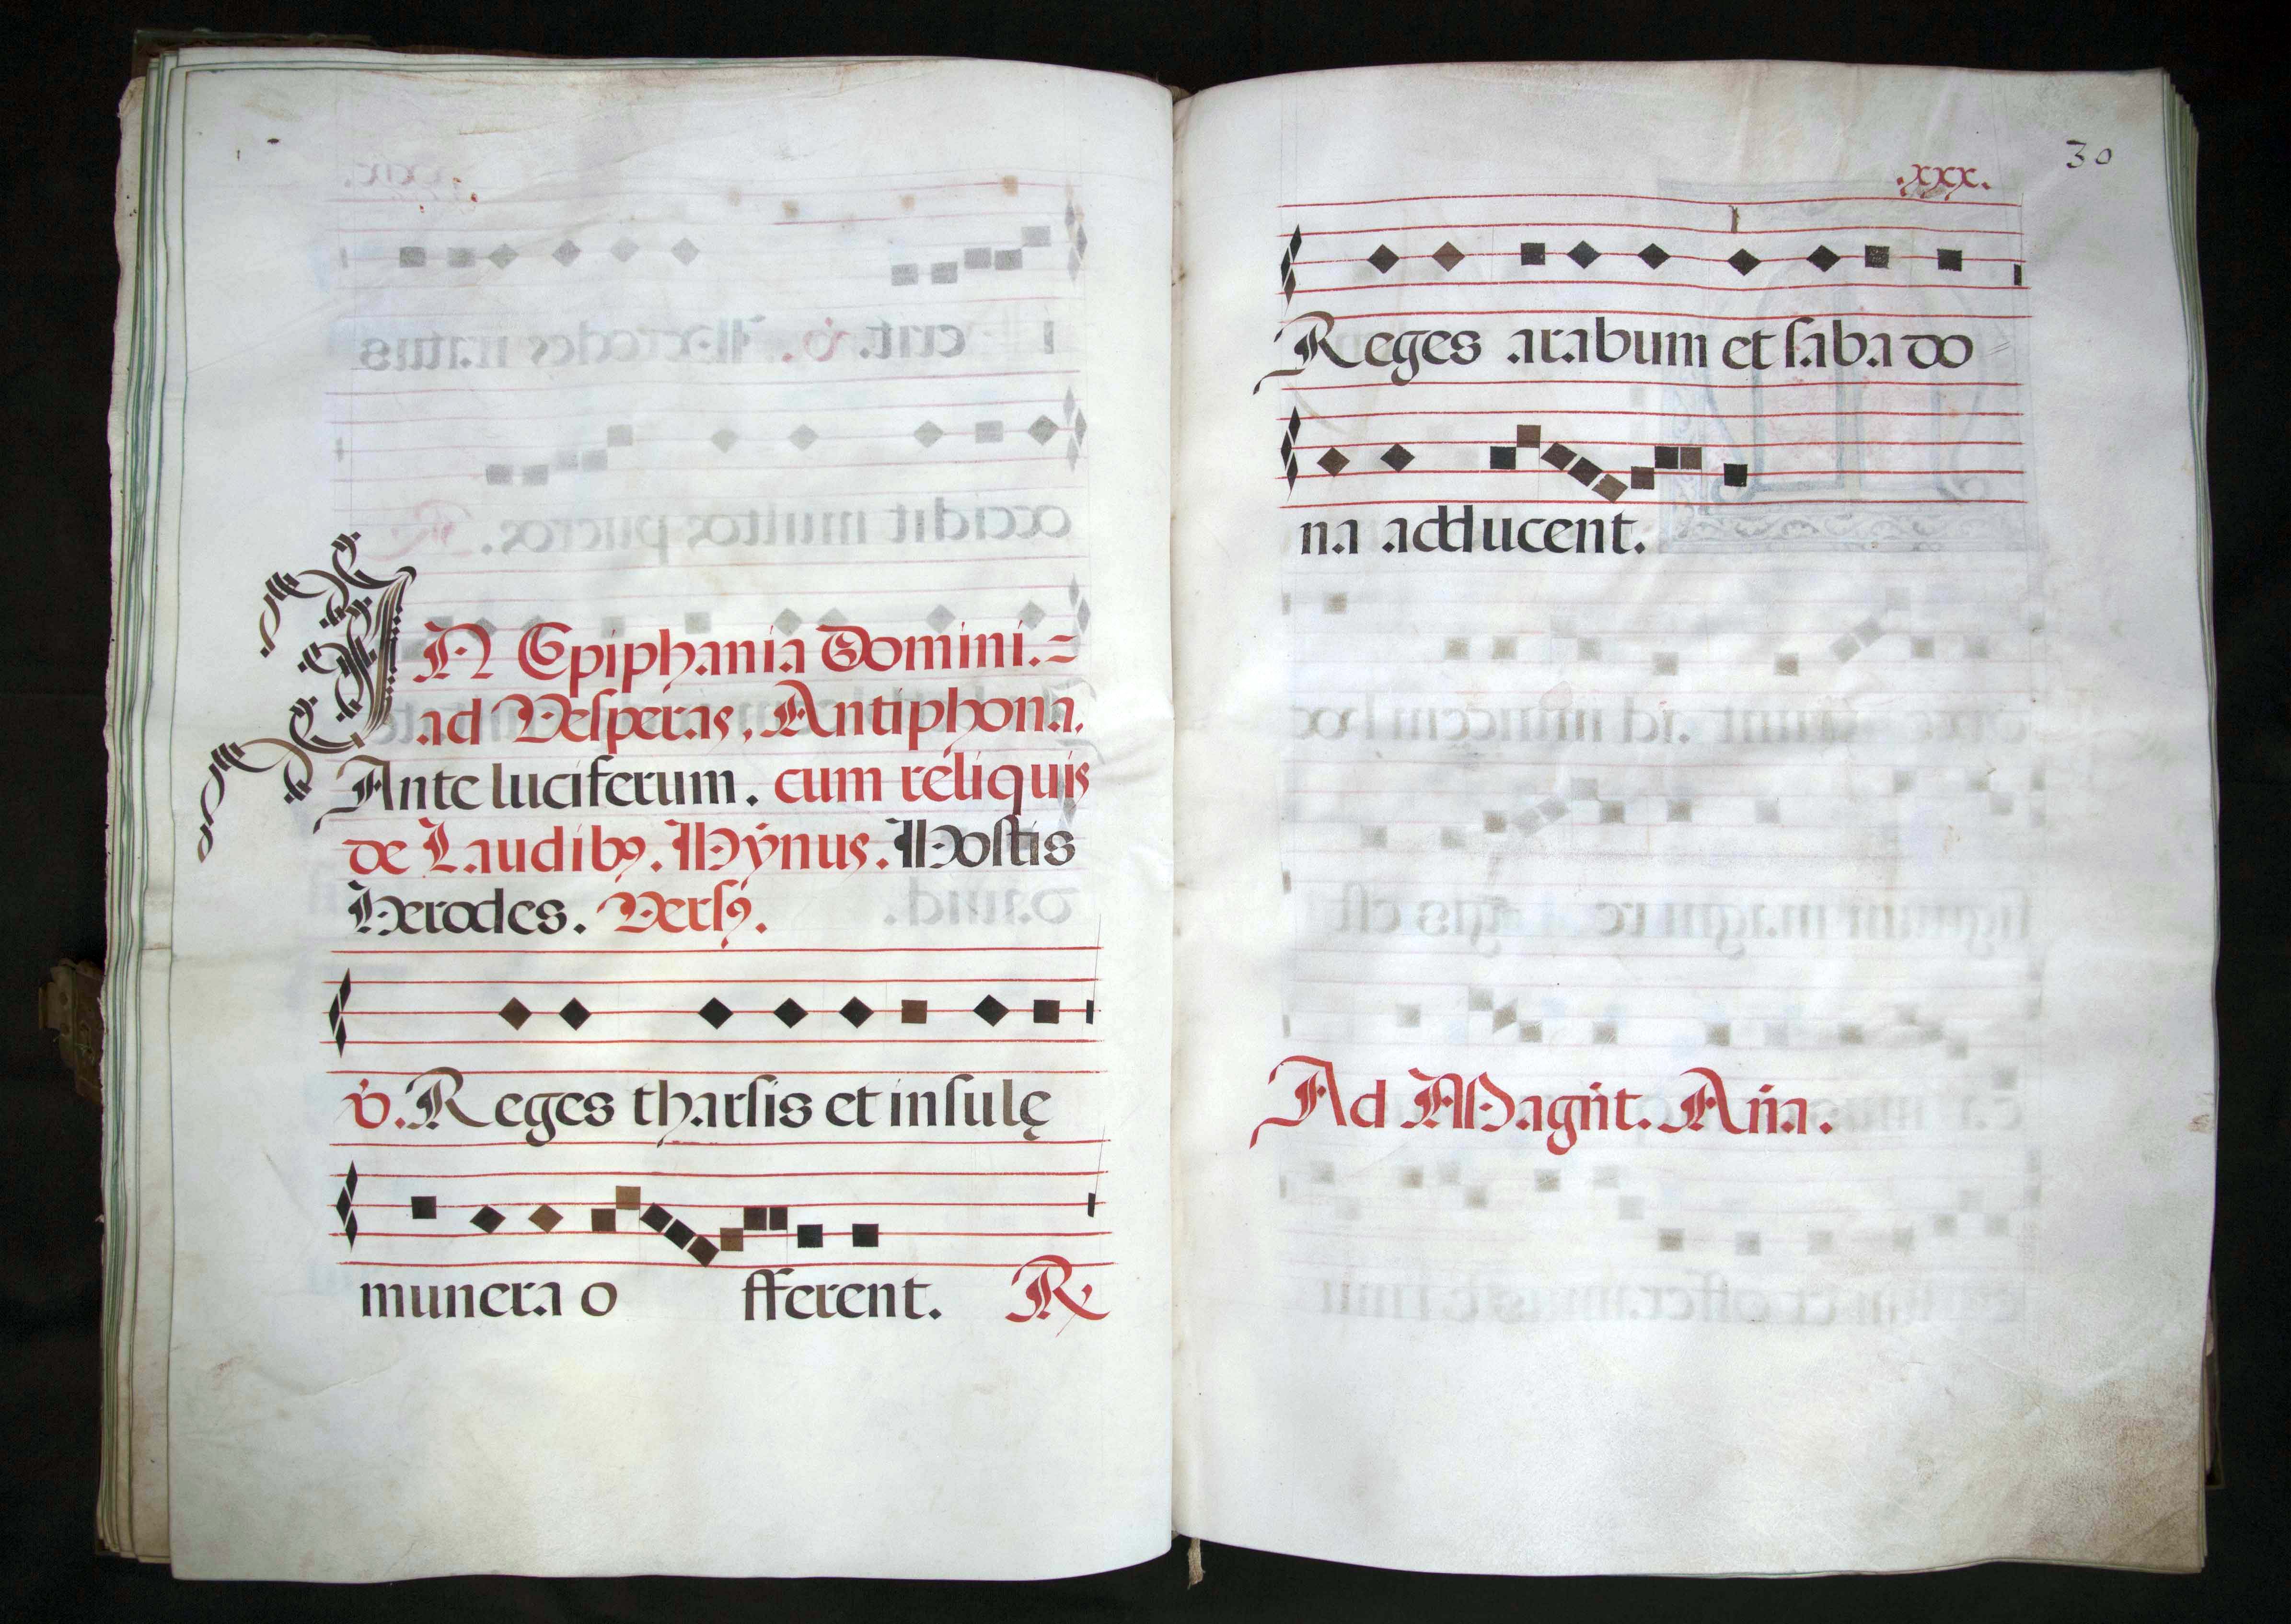 IN Epiphania Domini.=
ad Vesperas, Antiphona.
Ante luciferum. cum reliquis
de Laudibꝰ. Hỳnus. Hostis
Herodes. Versꝰ.
℣. Reges tharsis et insulę
munera o fferent. ℟
30
.xxx.
Reges arabum et saba do
na adducent.
Ad Magńt. Aña.